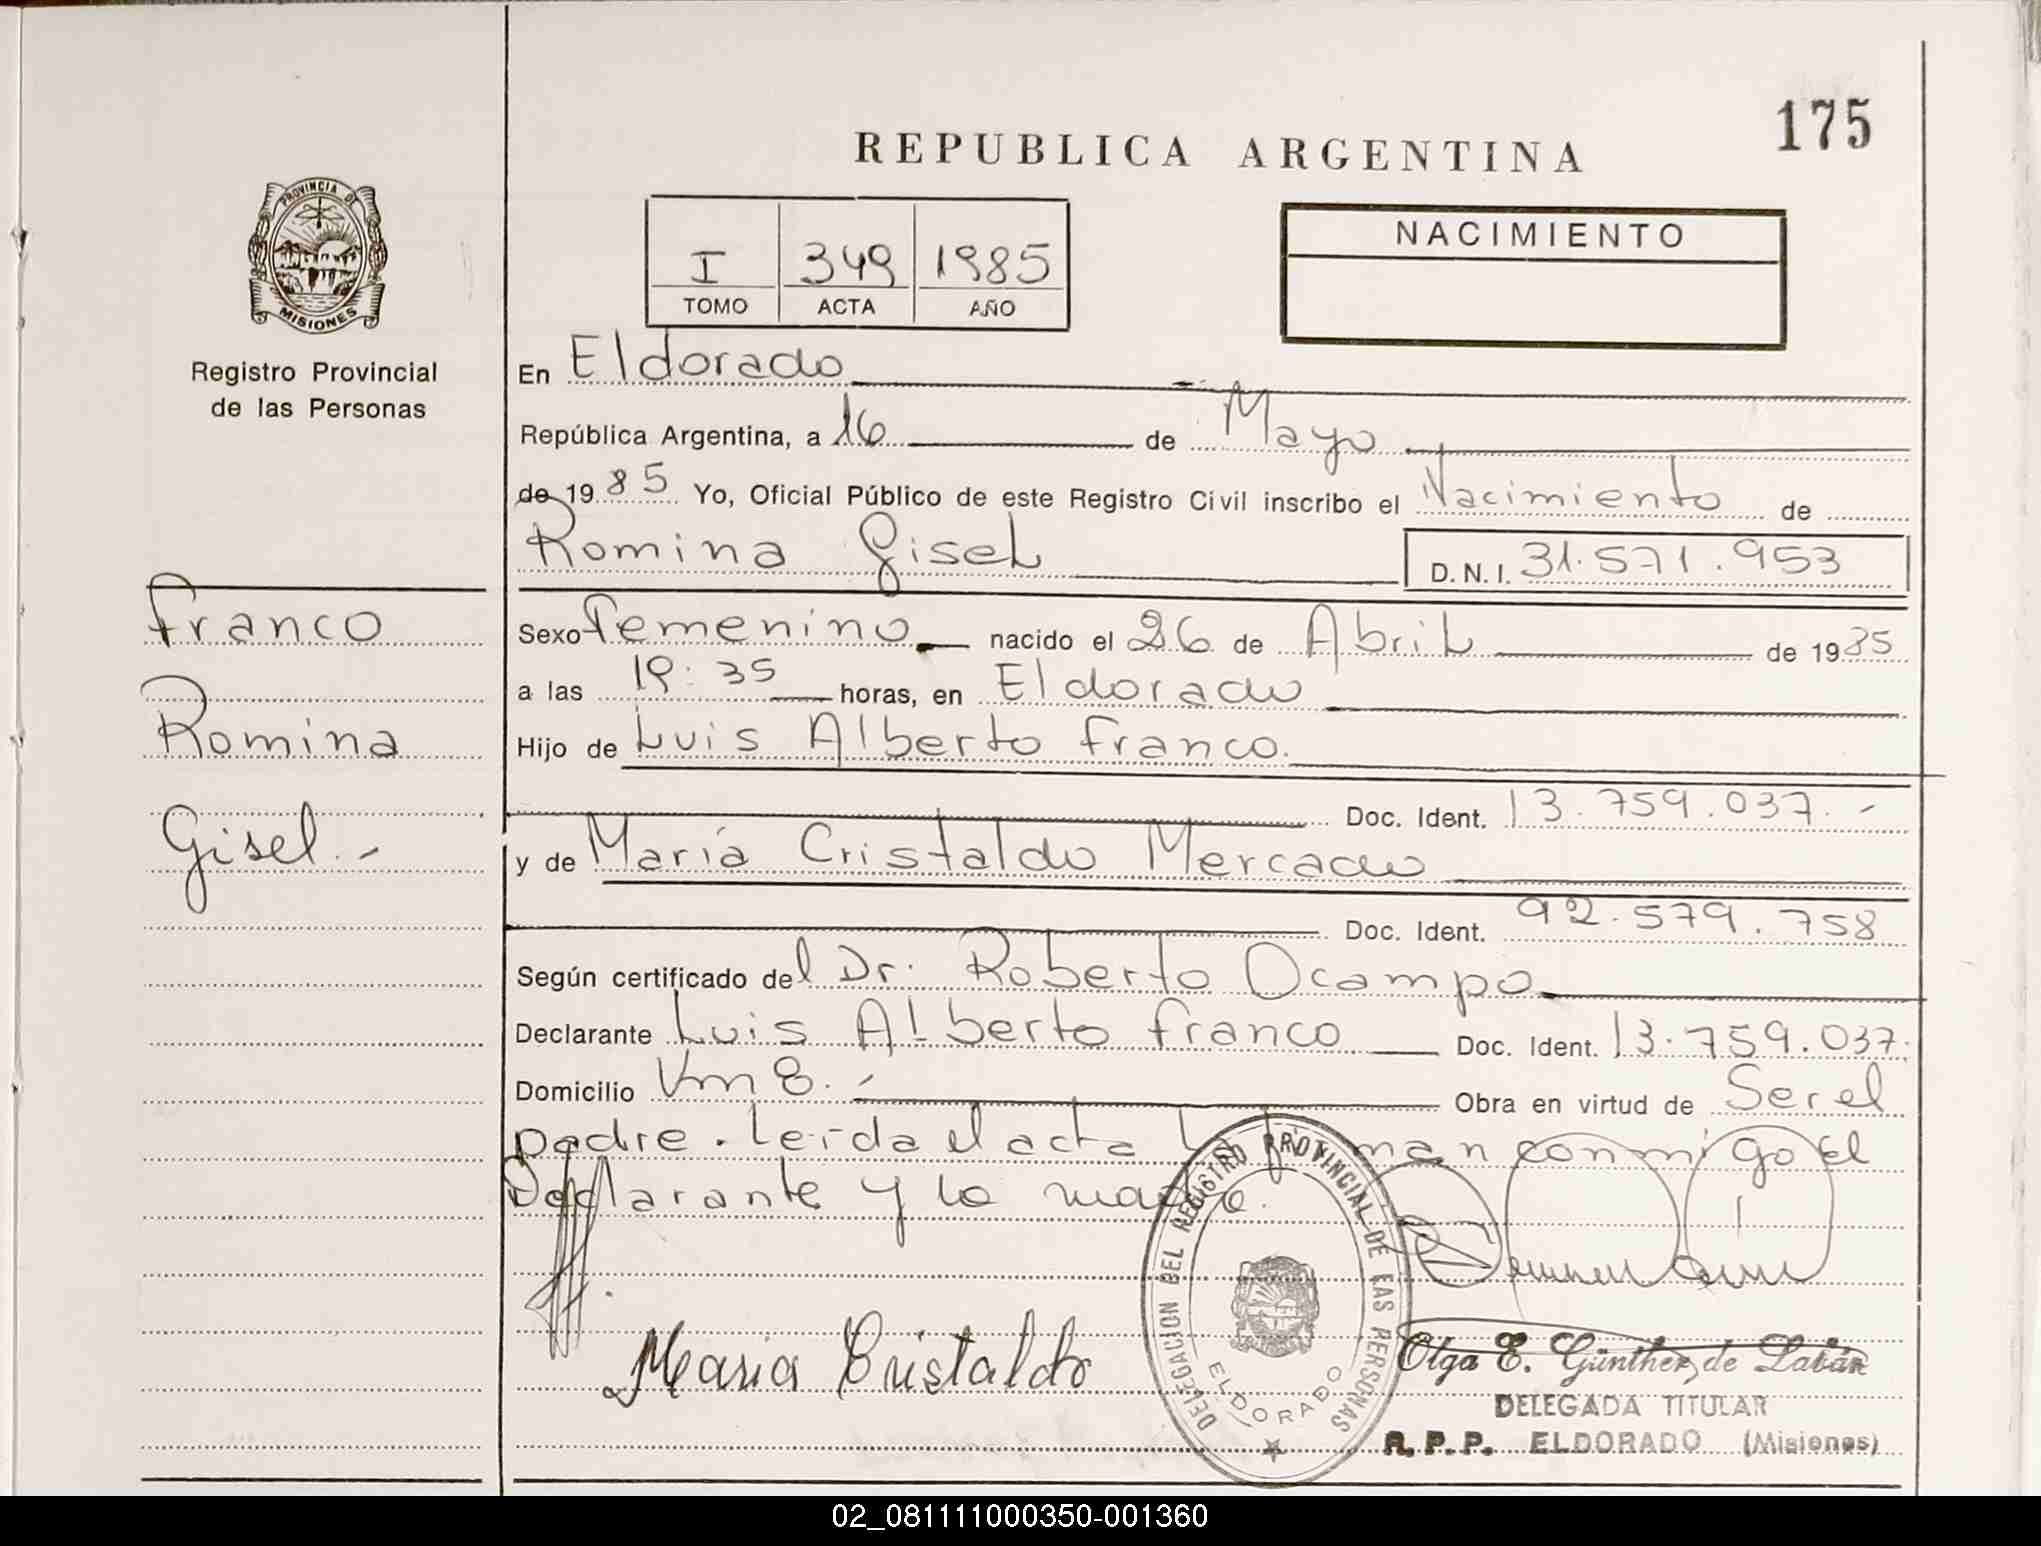 175
REPUBLICA ARGENTINA
PROVINCIA DE
MISIONES
Registro Provincial
de las Personas
I 349 1985
TOMO ACTA AÑO
NACIMIENTO
En Eldorado
República Argentina, a 16 de Mayo
de 19 85 Yo, Oficial Público de este Registro Civil inscribo el Nacimiento de
Romina Gisel D.N.I. 31.571.953
Franco
Romina
Gisel.-
Sexo Femenino nacido el 26 de Abril de 19 85
a las 19:35 horas, en Eldorado
Hijo de Luis Alberto Franco.
Doc. Ident. 13.759.037.-
y de María Cristaldo Mercado
Doc. Ident. 92.579.758
Según certificado del Dr. Roberto Ocampo
Declarante Luis Alberto Franco Doc. Ident. 13.759.037.
Domicilio Km 8.- Obra en virtud de Ser el
padre. Leída el acta la firman conmigo el
Declarante y la madre.
DELEGACION DEL REGISTRO PROVINCIAL DE LAS PERSONAS
ELDORADO
Maria Cristaldo
Olga E. Günther de Labán
DELEGADA TITULAR
R.P.P. ELDORADO (Misiones)
02_081111000350-001360